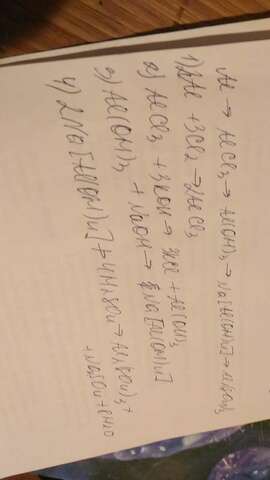 Al → AlCl₃ → Al(OH)₃ → Na[Al(OH)₄] → Al₂(SO₄)₃
1) 2Al + 3Cl₂ → 2AlCl₃
2) AlCl₃ + 3KOH → 3KCl + Al(OH)₃
3) Al(OH)₃ + NaOH → Na[Al(OH)₄]
4) 2Na[Al(OH)₄] + 4H₂SO₄ → Al₂(SO₄)₃ +
+ Na₂SO₄ + 8H₂O